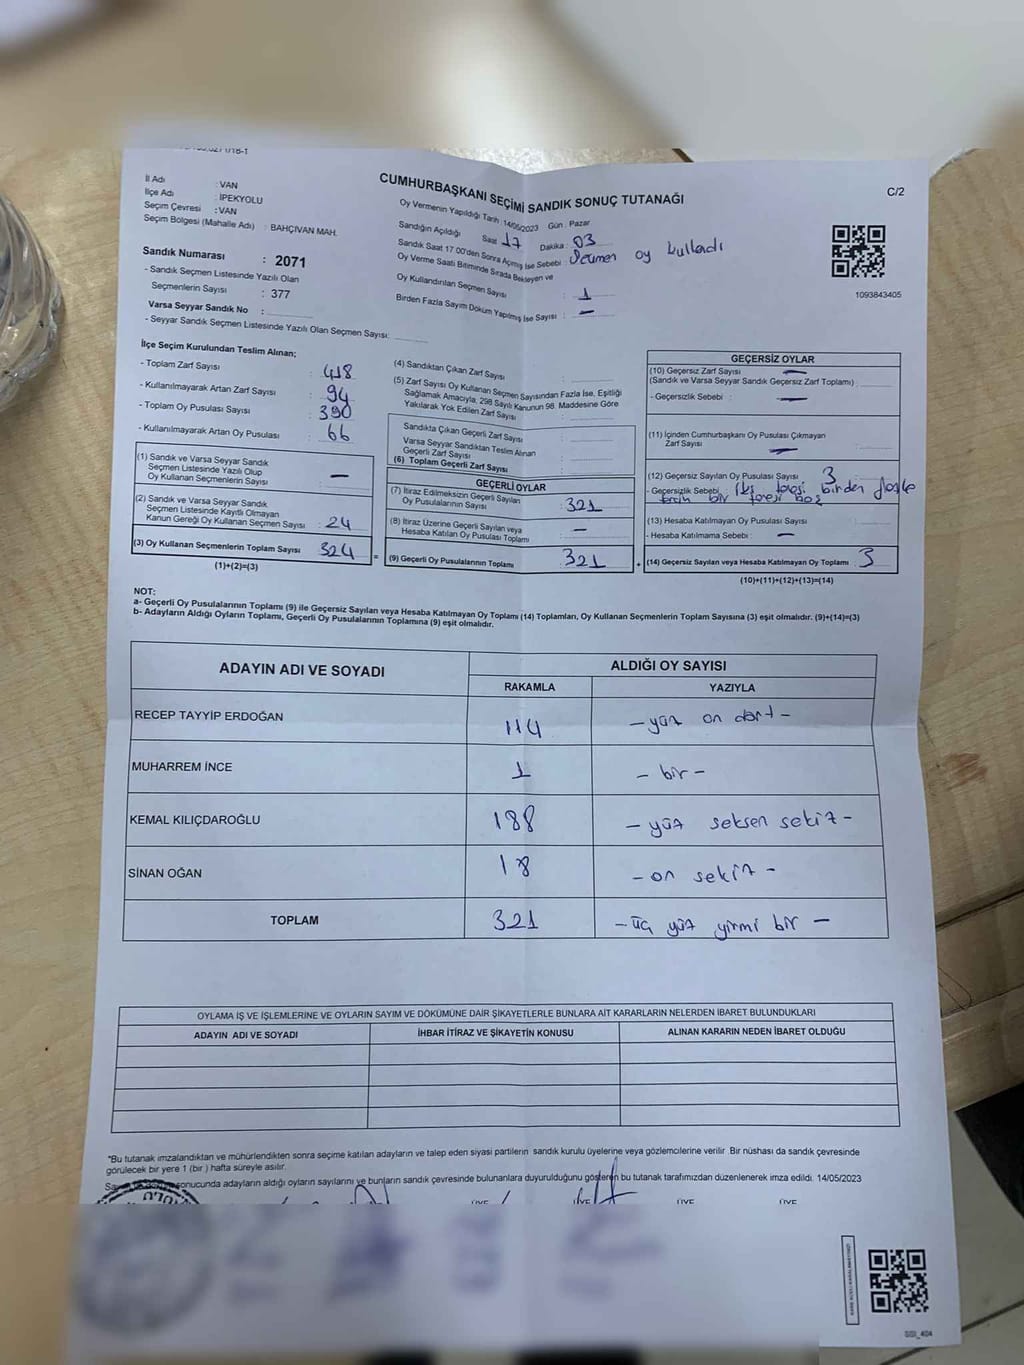 CUMHURBAŞKANI SEÇİMİ SANDIK SONUÇ TUTANAĞI
C/2
İl Adı : VAN
İlçe Adı : İPEKYOLU
Seçim Çevresi : VAN
Seçim Bölgesi (Mahalle Adı) : BAHÇIVAN MAH.
Oy Vermenin Yapıldığı Tarih : 14/05/2023 Gün : Pazar
Sandığın Açıldığı Saat 17 Dakika : 03
Sandık Saat 17.00'den Sonra Açımış İse Sebebi : Seçmen oy kullandı
Oy Verme Saati Bitiminde Sırada Bekleyen ve
Oy Kullandırılan Seçmen Sayısı : 1
Birden Fazla Sayım Döküm Yapılmış İse Sayısı : —
1093843405
Sandık Numarası : 2071
- Sandık Seçmen Listesinde Yazılı Olan
Seçmenlerin Sayısı : 377
Varsa Seyyar Sandık No :
- Seyyar Sandık Seçmen Listesinde Yazılı Olan Seçmen Sayısı:
İlçe Seçim Kurulundan Teslim Alınan;
- Toplam Zarf Sayısı : 418
- Kullanılmayarak Artan Zarf Sayısı : 94
- Toplam Oy Pusulası Sayısı : 390
- Kullanılmayarak Artan Oy Pusulası : 66
(1) Sandık ve Varsa Seyyar Sandık
Seçmen Listesinde Yazılı Olup
Oy Kullanan Seçmenlerin Sayısı : —
(2) Sandık ve Varsa Seyyar Sandık
Seçmen Listesinde Kayıtlı Olmayan
Kanun Gereği Oy Kullanan Seçmen Sayısı : 24
(3) Oy Kullanan Seçmenlerin Toplam Sayısı 324
(1)+(2)=(3)
(4) Sandıktan Çıkan Zarf Sayısı :
(5) Zarf Sayısı Oy Kullanan Seçmen Sayısından Fazla İse, Eşitliği
Sağlamak Amacıyla, 298 Sayılı Kanunun 98. Maddesine Göre
Yakılarak Yok Edilen Zarf Sayısı :
Sandıkta Çıkan Geçerli Zarf Sayısı :
Varsa Seyyar Sandıktan Teslim Alınan
Geçerli Zarf Sayısı :
(6) Toplam Geçerli Zarf Sayısı :
GEÇERLİ OYLAR
(7) İtiraz Edilmeksizin Geçerli Sayılan
Oy Pusulalarının Sayısı : 321
(8) İtiraz Üzerine Geçerli Sayılan veya
Hesaba Katılan Oy Pusulası Toplamı : —
= (9) Geçerli Oy Pusulalarının Toplamı : 321
GEÇERSİZ OYLAR
(10) Geçersiz Zarf Sayısı —
(Sandık ve Varsa Seyyar Sandık Geçersiz Zarf Toplamı) :
- Geçersizlik Sebebi : —
(11) İçinden Cumhurbaşkanı Oy Pusulası Çıkmayan
Zarf Sayısı : —
(12) Geçersiz Sayılan Oy Pusulası Sayısı : 3
- Geçersizlik Sebebi : birden fazla
bir boş
(13) Hesaba Katılmayan Oy Pusulası Sayısı :
- Hesaba Katılmama Sebebi : —
+ (14) Geçersiz Sayılan veya Hesaba Katılmayan Oy Toplamı : 3
(10)+(11)+(12)+(13)=(14)
NOT:
a- Geçerli Oy Pusulalarının Toplamı (9) ile Geçersiz Sayılan veya Hesaba Katılmayan Oy Toplamı (14) Toplamları, Oy Kullanan Seçmenlerin Toplam Sayısına (3) eşit olmalıdır. (9)+(14)=(3)
b- Adayların Aldığı Oyların Toplamı, Geçerli Oy Pusulalarının Toplamına (9) eşit olmalıdır.
ADAYIN ADI VE SOYADI ALDIĞI OY SAYISI
RAKAMLA YAZIYLA
RECEP TAYYİP ERDOĞAN 114 - yüz on dört -
MUHARREM İNCE 1 - bir -
KEMAL KILIÇDAROĞLU 188 - yüz seksen sekiz -
SİNAN OĞAN 18 - on sekiz -
TOPLAM 321 - üç yüz yirmi bir -
OYLAMA İŞ VE İŞLEMLERİNE VE OYLARIN SAYIM VE DÖKÜMÜNE DAİR ŞİKAYETLERLE BUNLARA AİT KARARLARIN NELERDEN İBARET BULUNDUKLARI
ADAYIN ADI VE SOYADI İHBAR İTİRAZ VE ŞİKAYETİN KONUSU ALINAN KARARIN NEDEN İBARET OLDUĞU
*Bu tutanak imzalandıktan ve mühürlendikten sonra seçime katılan adayların ve talep eden siyasi partilerin sandık kurulu üyelerine veya gözlemcilerine verilir. Bir nüshası da sandık çevresinde
görülecek bir yere 1 (bir ) hafta süreyle asılır.
sonucunda adayların aldığı oyların sayılarını ve bunların sandık çevresinde bulunanlara duyurulduğunu gösteren bu tutanak tarafımızdan düzenlenerek imza edildi. 14/05/2023
ÜYE ÜYE ÜYE ÜYE
SSI_404